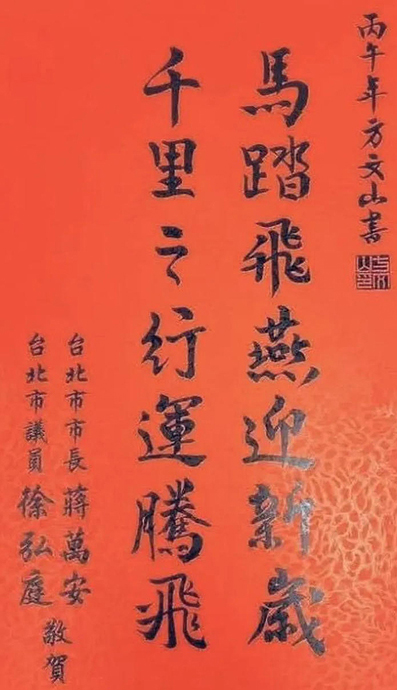 丙午年方文山書
馬踏飛燕迎新歲
千里之行運騰飛
台北市市長 蔣萬安
台北市議員 徐弘庭
敬賀